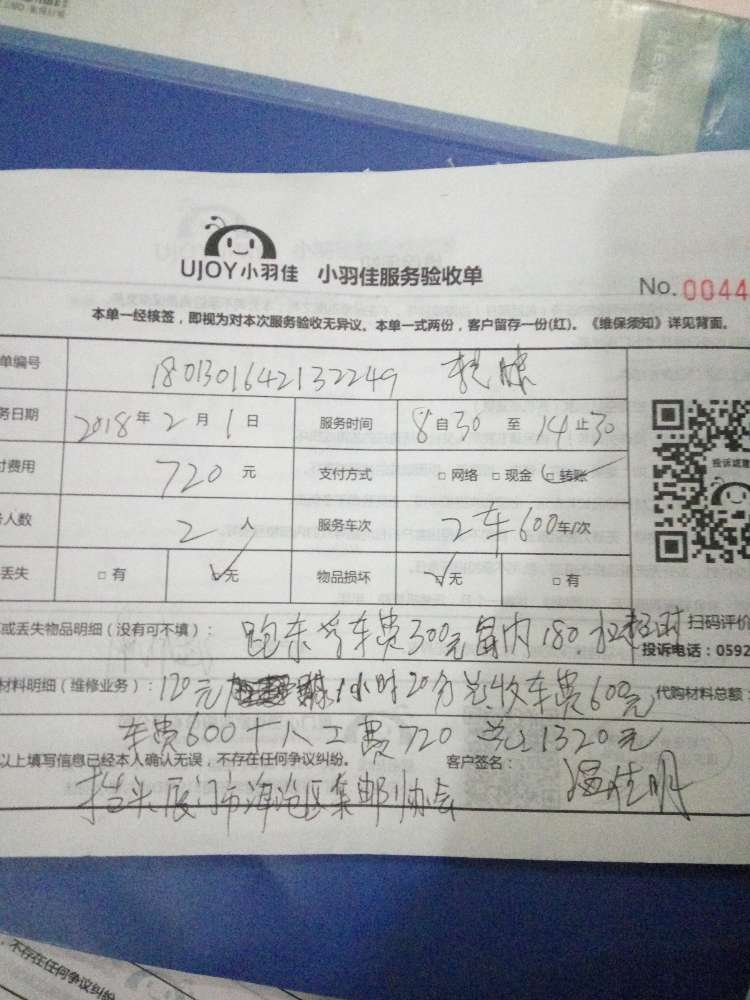 UJOY小羽佳 小羽佳服务验收单
No. 0044
本单一经核签，即视为对本次服务验收无异议。本单一式两份，客户留存一份(红)。《维保须知》详见背面。
单编号 1801301642132249
务日期 2018年2月1日 服务时间 8自30至14止30
付费用 720元 支付方式 □网络 □现金 □转账
人数 2人 服务车次 2车600车/次
丢失 □有 □无 物品损坏 □无 □有
投诉或建
或丢失物品明细（没有可不填）：跑东孚车费300元岛内180. 超时
扫码评价
投诉电话：0592
材料明细（维修业务）：120元 1小时20分总收车费600元 代购材料总额：
车费600十人工费720 总1320元
以上填写信息已经本人确认无误，不存在任何争议纠纷。 客户签名：
抬头厦门市海沧区集邮协会
不存在任何争议纠纷